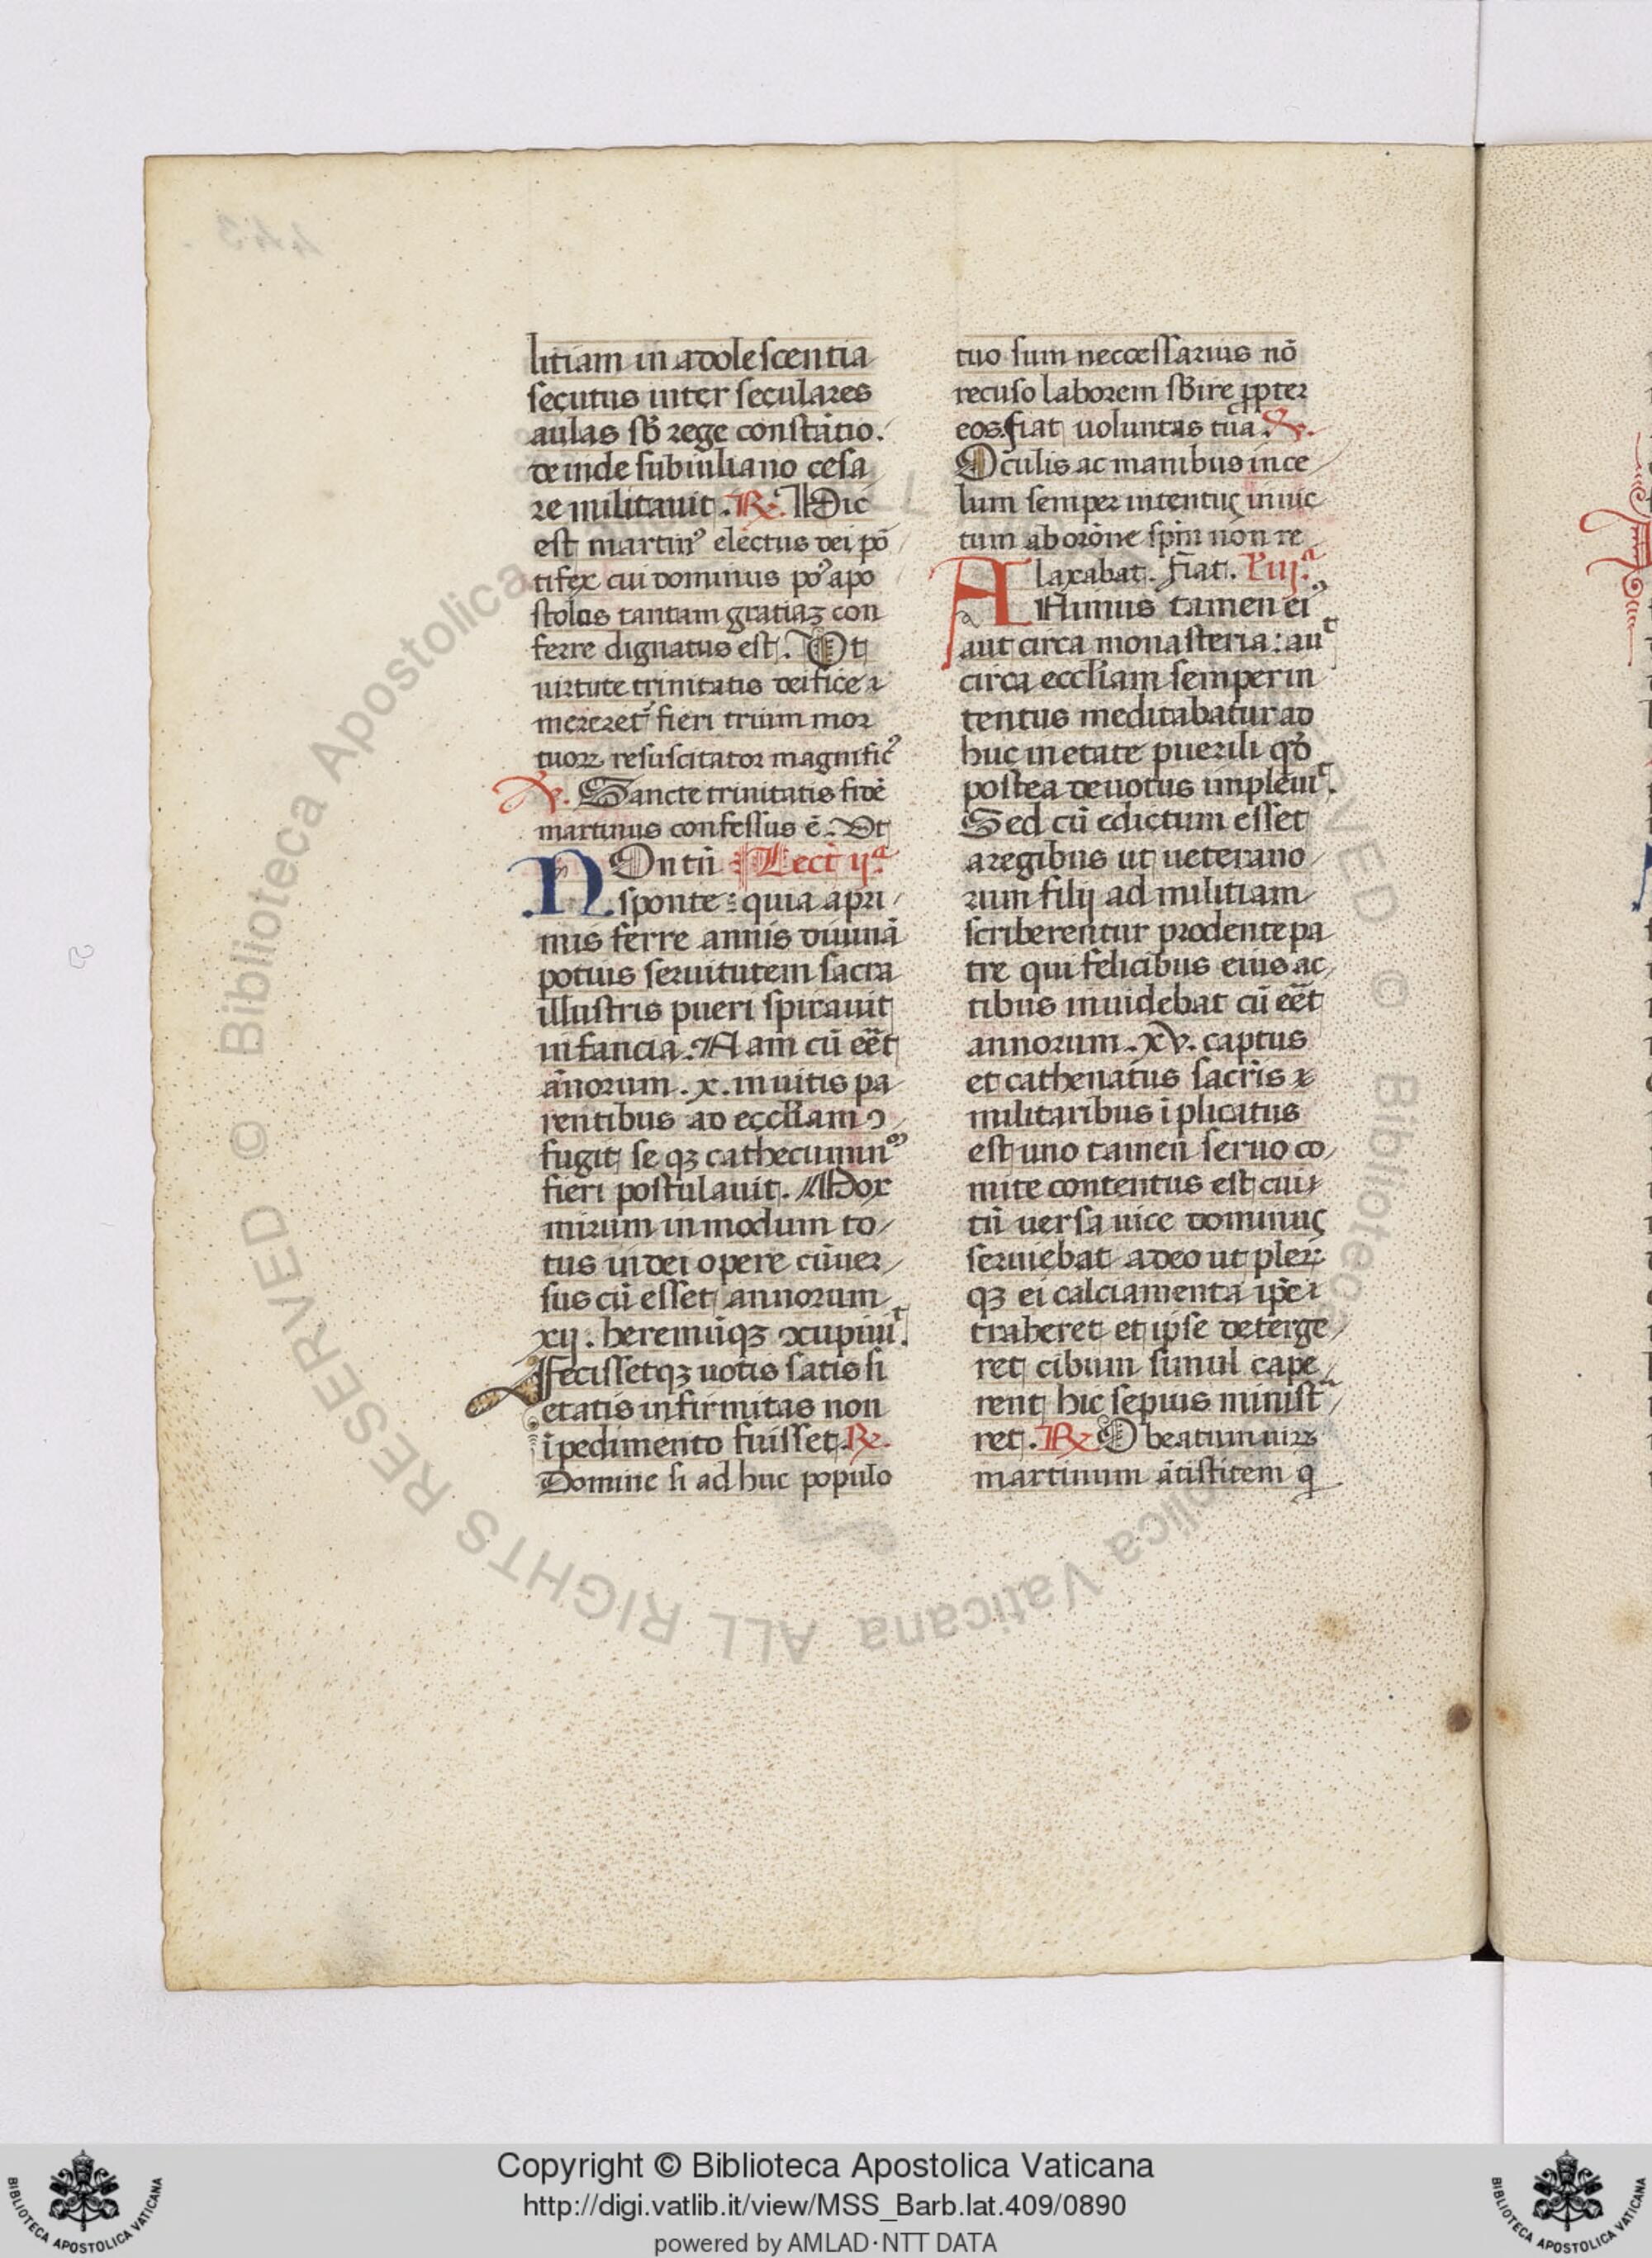 litiam in adolescentia
secutus inter seculares
aulas sb̄ rege constātio.
deinde sub iuliano cesa
re militauit. R℣. Hic
est martinꝰ electus dei pō
tifex cui dominus pꝰ apo
stolos tantam gratiaꝫ con
ferre dignatus est. Ut
uirtute trinitatis deifice
mereret᷑ fieri trium mor
tuoꝝ resuscitator magnificꝰ
℣. Sancte trinitatis fidē
martinus confessus ē. Ut
NOn tn̄ Lect ijᵃ
sponte: quia a pri
mis ferre annis diuinā
potius seruitutem sacra
illustris pueri spirauit
infancia. Nam cū eēt
annorum .x. inuitis pa
rentibus ad eccl̄iam ꝯ
fugit se qꝫ cathecuminū
fieri postulauit. Mox
mirum in modum to
tus in dei opere cūuer
sus cū esset annorum
xij. heremūqꝫ ꝯcupiuiᵗ.
fecissetqꝫ uotis satis si
etatis infirmitas non
īpedimento fuisset. R℣.
Domine si adhuc populo
tuo sum neccessarius nō
recuso laborem sb̄ire ꝓpter
eos. fiat uoluntas tua. ℣.
Oculis ac manibus in ce
lum semper intentus inuic
tum ab orōne sp̄m non re
laxabat. Fiat. l'iijᵃ
ANimus tamen eiꝰ
aut circa monasteria: auᵗ
circa eccl̄iam semper in
tentus meditabatur ad
huc in etate puerili qd̄
postea deuotus impleuiᵗ.
Sed cū edictum esset
a regibus ut ueterano
rum filij ad militiam
scriberentur prodente pa
tre qui felicibus eius ac
tibus inuidebat cū eēt
annorum .xv. captus
et cathenatus sacrīs
militaribus īplicatus
est uno tamen seruo co
mite contentus est cui
tn̄ uersa uice dominus
seruiebat adeo ut pler
qꝫ ei calciamenta ip̄e
traheret et ipse deterge
ret cibum simul cape
rent hic sepius minist
ret. R℣ O beatum uiꝝ
martinum ātistitem q
Copyright © Biblioteca Apostolica Vaticana
http://digi.vatlib.it/view/MSS_Barb.lat.409/0890
powered by AMLAD·NTT DATA
BIBLIOTECA APOSTOLICA VATICANA
BIBLIOTECA APOSTOLICA VATICANA
© Biblioteca Apostolica Vaticana ALL RIGHTS RESERVED